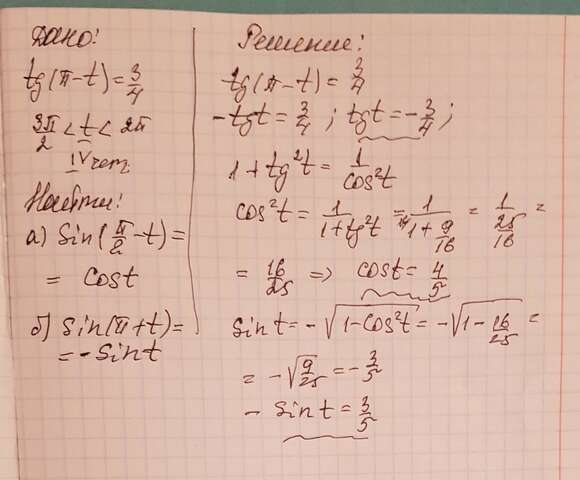 Дано:
tg(π-t)=3/4
3π/2 < t < 2π
IV чет.
Найти:
а) Sin(π/2-t)=
= Cost
б) Sin(π+t)=
=-Sint
Решение:
tg(π-t)=3/4
-tgt=3/4; tgt=-3/4;
1+tg²t=1/cos²t
cos²t=1/1+tg²t=1/1+9/16=1/25/16=
=16/25 => cost=4/5
Sint=-√1-cos²t=-√1-16/25=
=-√9/25=-3/5
- Sint=3/5